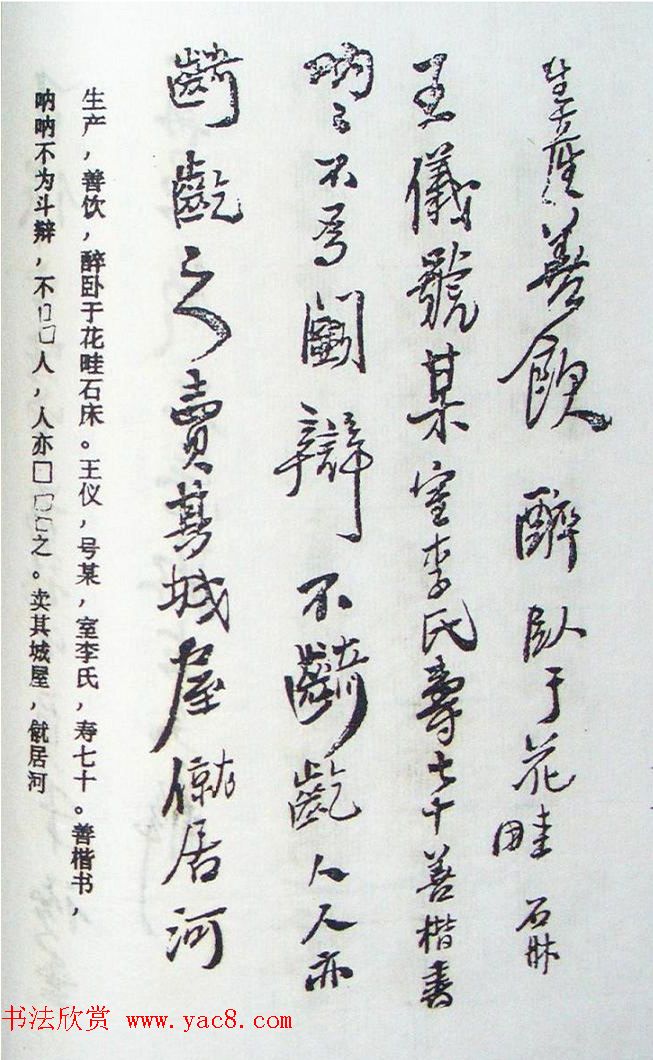 生產善飲醉臥于花畦石牀
王儀號某室李氏壽七十善楷書
呐〻不為鬭辯不齮齕人人亦
齮齕之賣其城屋僦居河
生产，善饮，醉卧于花畦石床。王仪，号某，室李氏，寿七十。善楷书，
呐呐不为斗辩，不□□人，人亦□□□之。卖其城屋，僦居河
书法欣赏 www.yac8.com